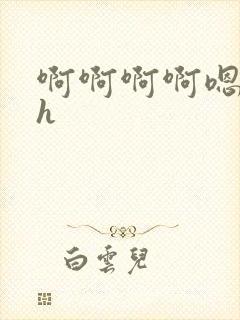 啊啊啊啊嗯
h
白雲兒